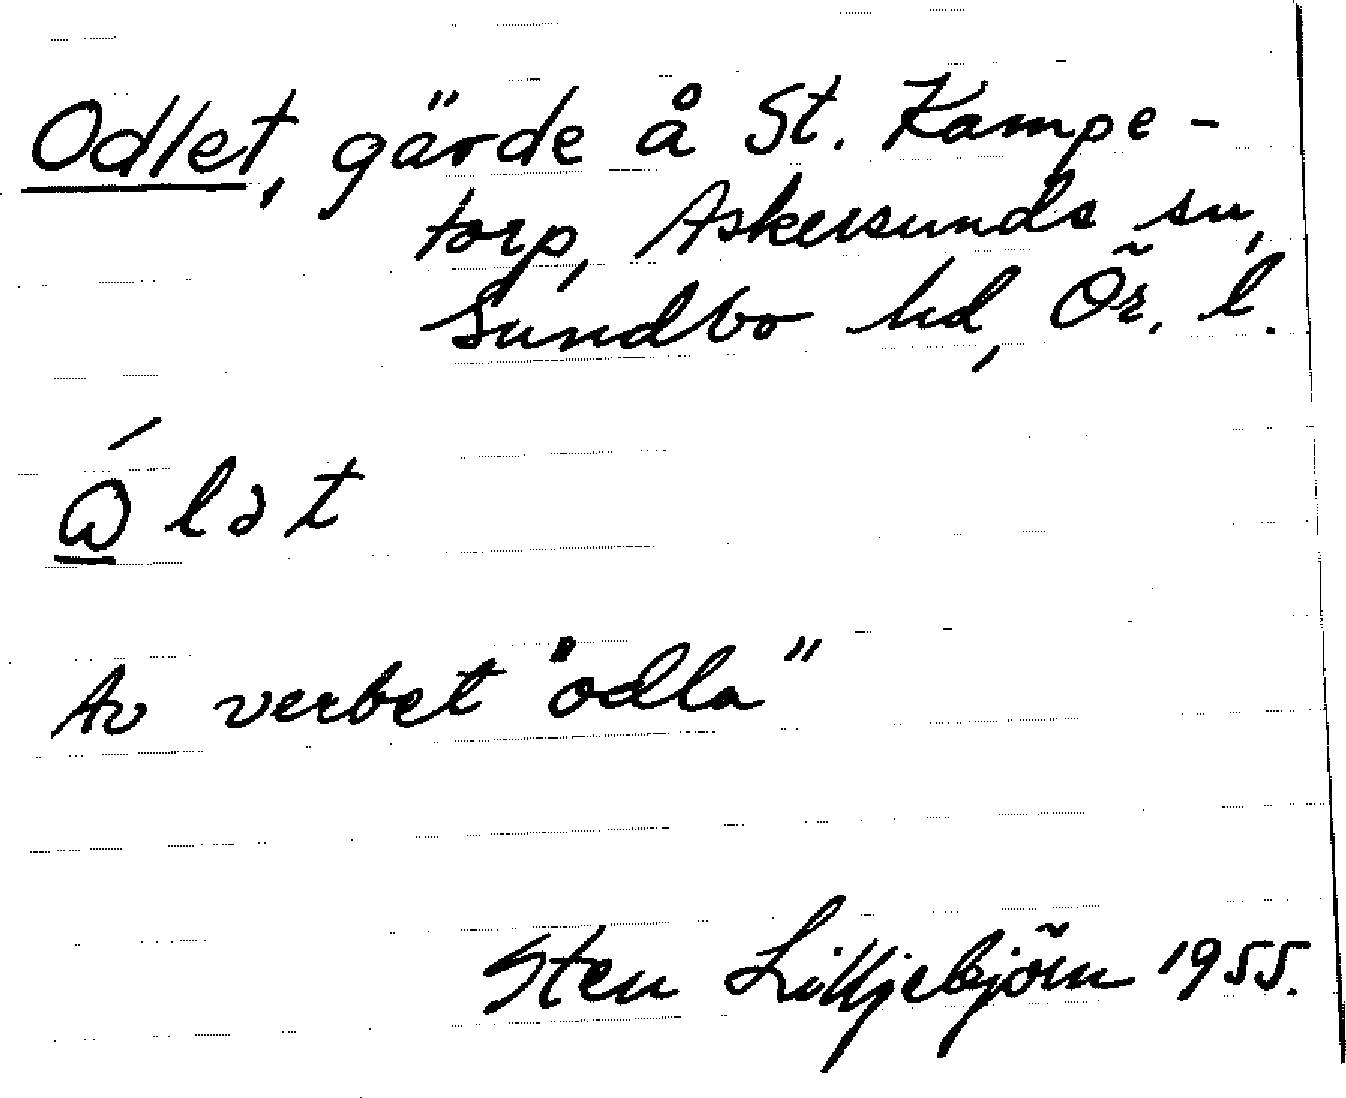 Odlet, gärde å St. Kampe-
torp, Askersunds sn,
Sundbo hd, Ör. l.
lət
Av verbet "odla"
Sten Lilljebjörn 1955.